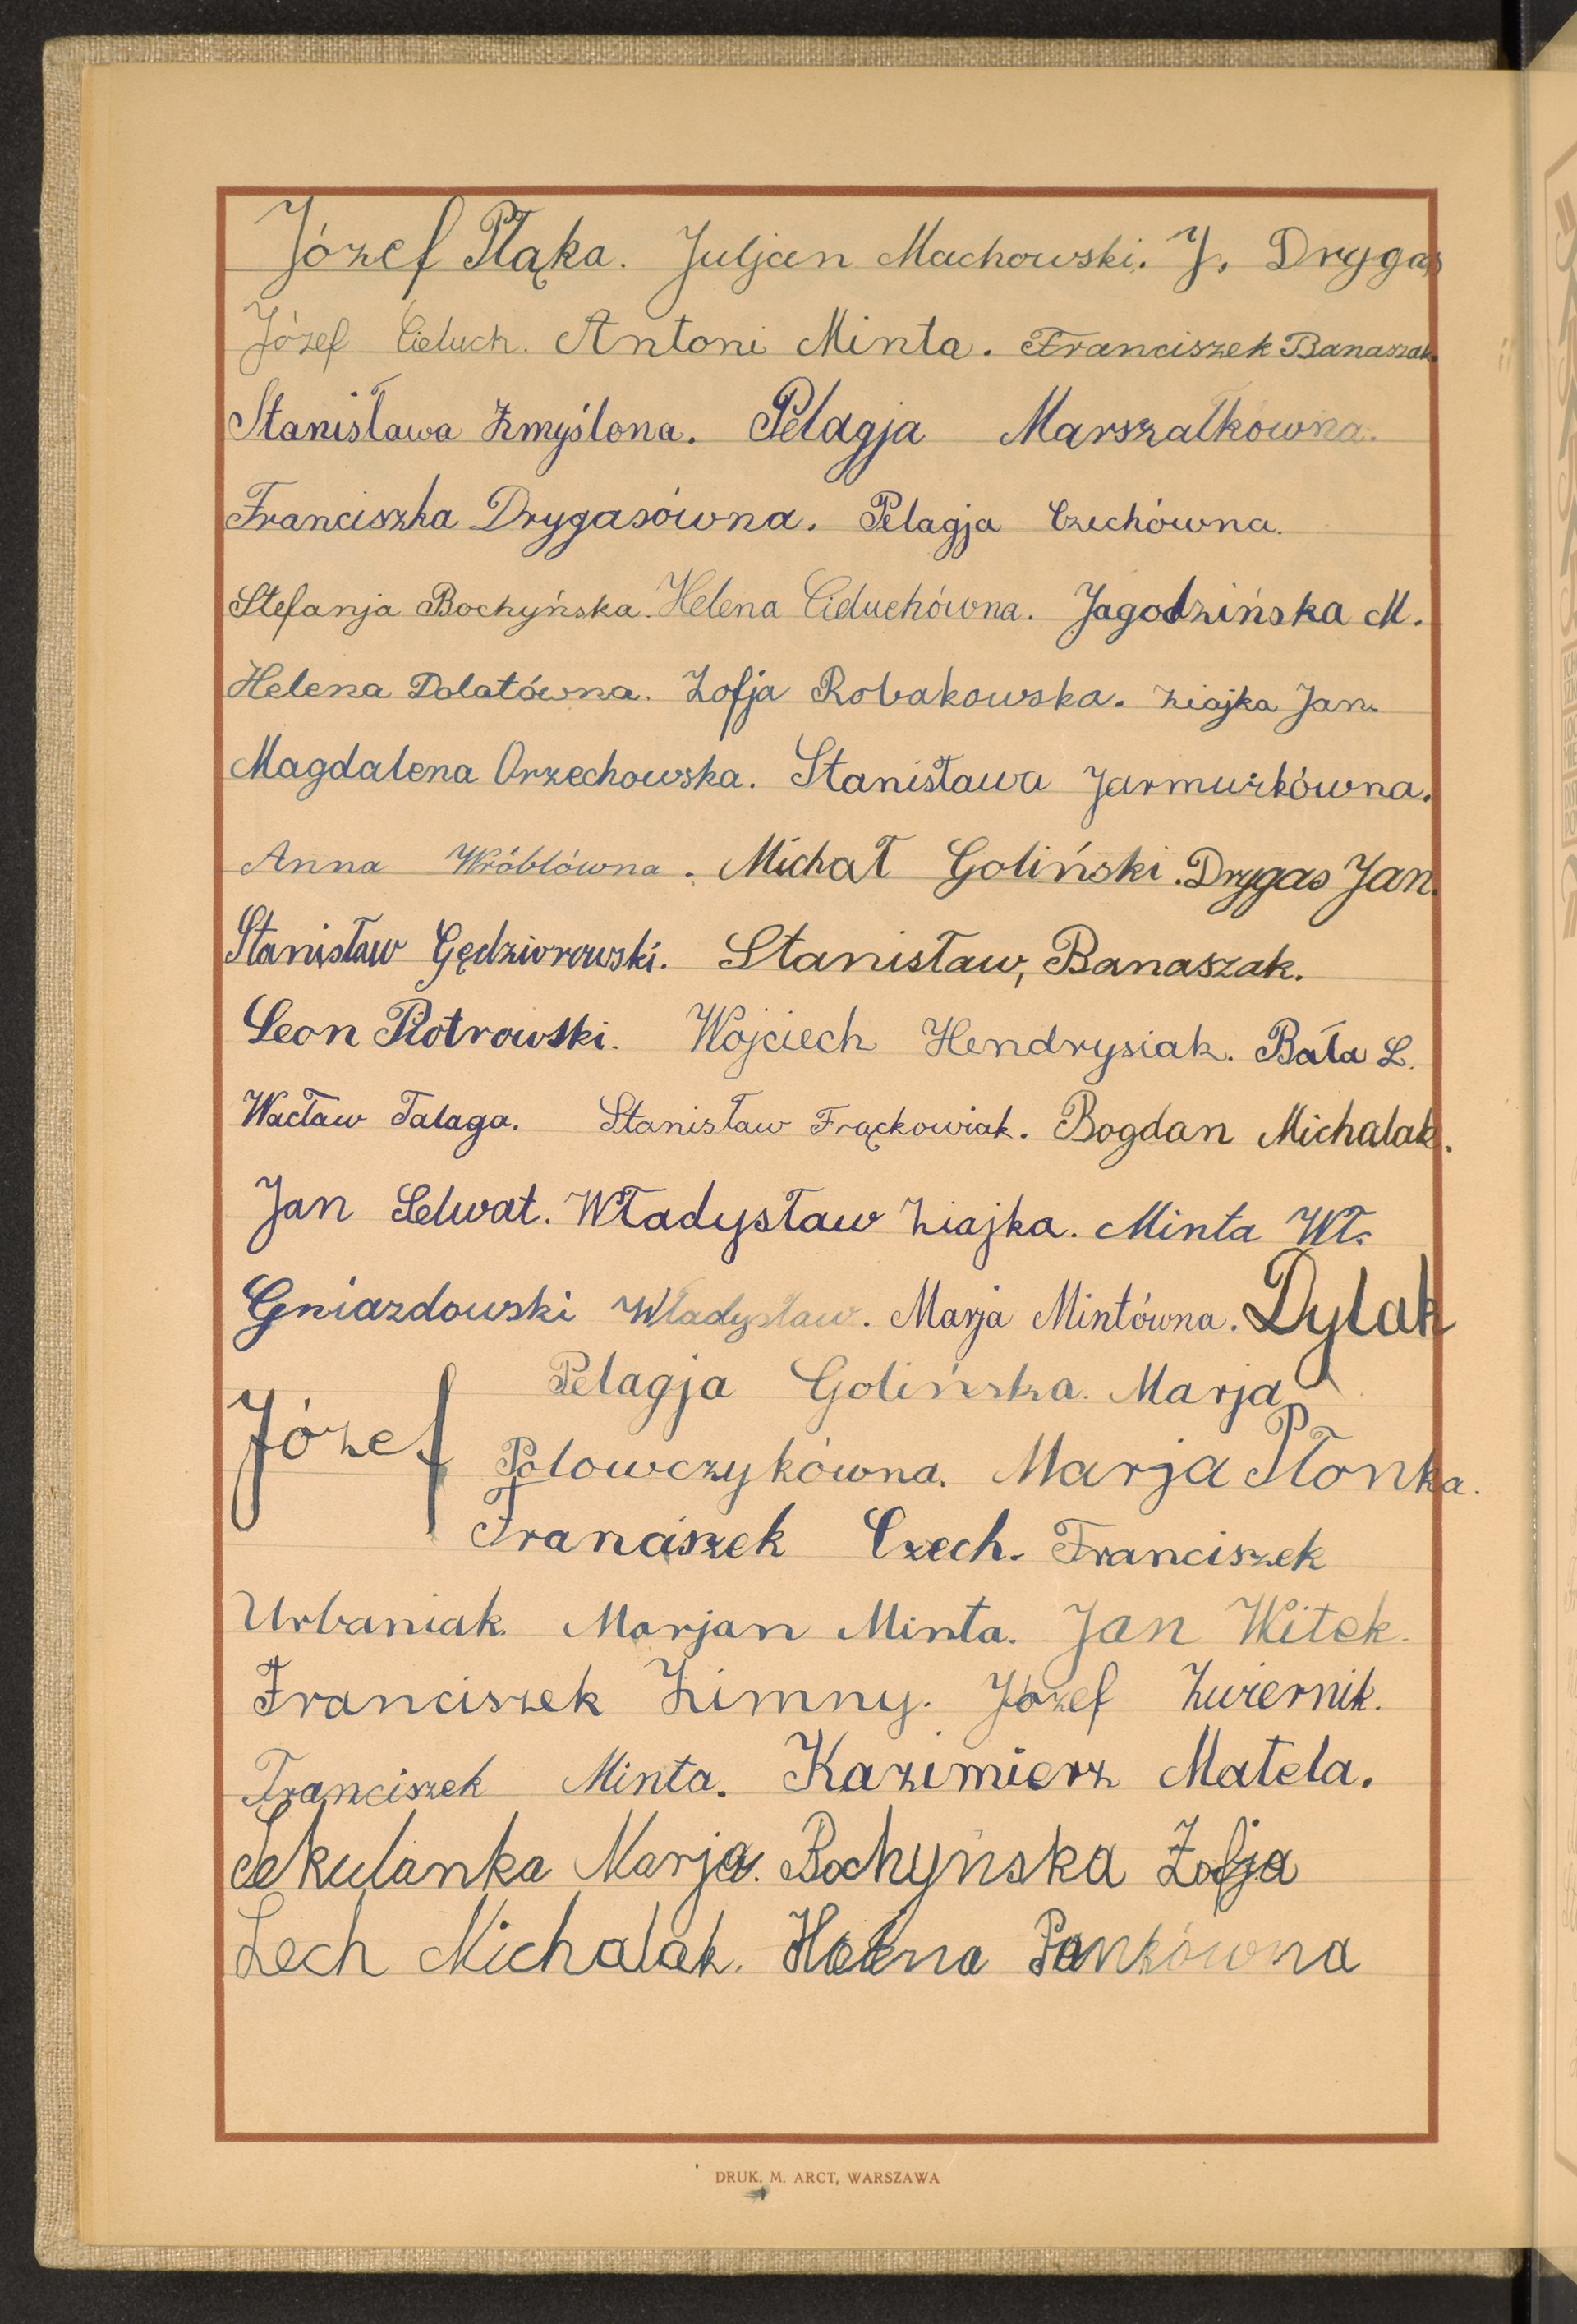 Józef Płąka. Juljan Machowski. J. Drygas
Józef Cieluch. Antoni Minta. Franciszek Banaszak.
Stanisława Zmyślona. Pelagja Marszałkówna.
Franciszka Drygasówna. Pelagja Czechówna.
Stefanja Bochyńska. Helena Cieluchówna. Jagodzińska M.
Helena Dolatówna. Zofja Robakowska. Ziajka Jan.
Magdalena Orzechowska. Stanisława Jarmużkówna.
Anna Wróblówna. Michał Goliński. Drygas Jan.
Stanisław Gędziorowski. Stanisław, Banaszak.
Leon Piotrowski. Wojciech Hendrysiak. Bała L.
Wacław Talaga. Stanisław Frąckowiak. Bogdan Michalak.
Jan Selwat. Władysław Ziajka. Minta Wł.
Gniazdowski Władysław. Marja Mintówna. Dylak
Józef Pelagja Golińska. Marja
Polowczykówna. Marja Płonka.
Franciszek Czech. Franciszek
Urbaniak. Marjan Minta. Jan Witek.
Franciszek Zimny. Józef Zwiernik.
Franciszek Minta. Kazimierz Matela.
Sekulanka Marja. Bochyńska Zofja
Lech Michalak. Helena Pankówna
DRUK. M. ARCT, WARSZAWA